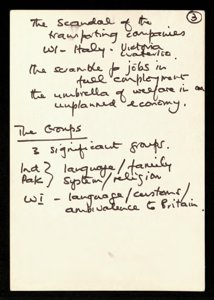 ③
The Scandal of the
transporting companies
WI - Italy - Victoria
Waterloo.
The scramble for jobs in
full employment
the umbrella of welfare in an
unplanned economy.
The Groups
3 significant groups.
Ind } language / family
Pak } system / religion
WI - language / customs /
ambivalence to Britain.